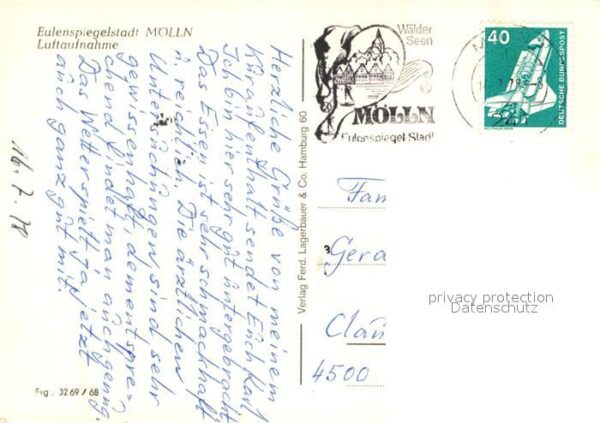 Eulenspiegelstadt MÖLLN
Luftaufnahme
Herzliche Grüße von meinem
Kuraufenthalt sendet Euch Karl
Ich bin hier sehr gut untergebracht
Das Essen ist sehr schmackhaft
u. reichlich. Die ärztlichen
Untersuchungen sind sehr
gewissenhaft, dementspre=
chend findet man auch genug.
Das Wetter spielt ja jetzt
auch ganz gut mit.
16.7.78
Frg. 3269/68
Verlag Ferd. Lagerbauer & Co. Hamburg 60
Wälder
Seen
MÖLLN
Eulenspiegel-Stadt
40
DEUTSCHE BUNDESPOST
Fam
Gera
Clau
4500
privacy protection
Datenschutz